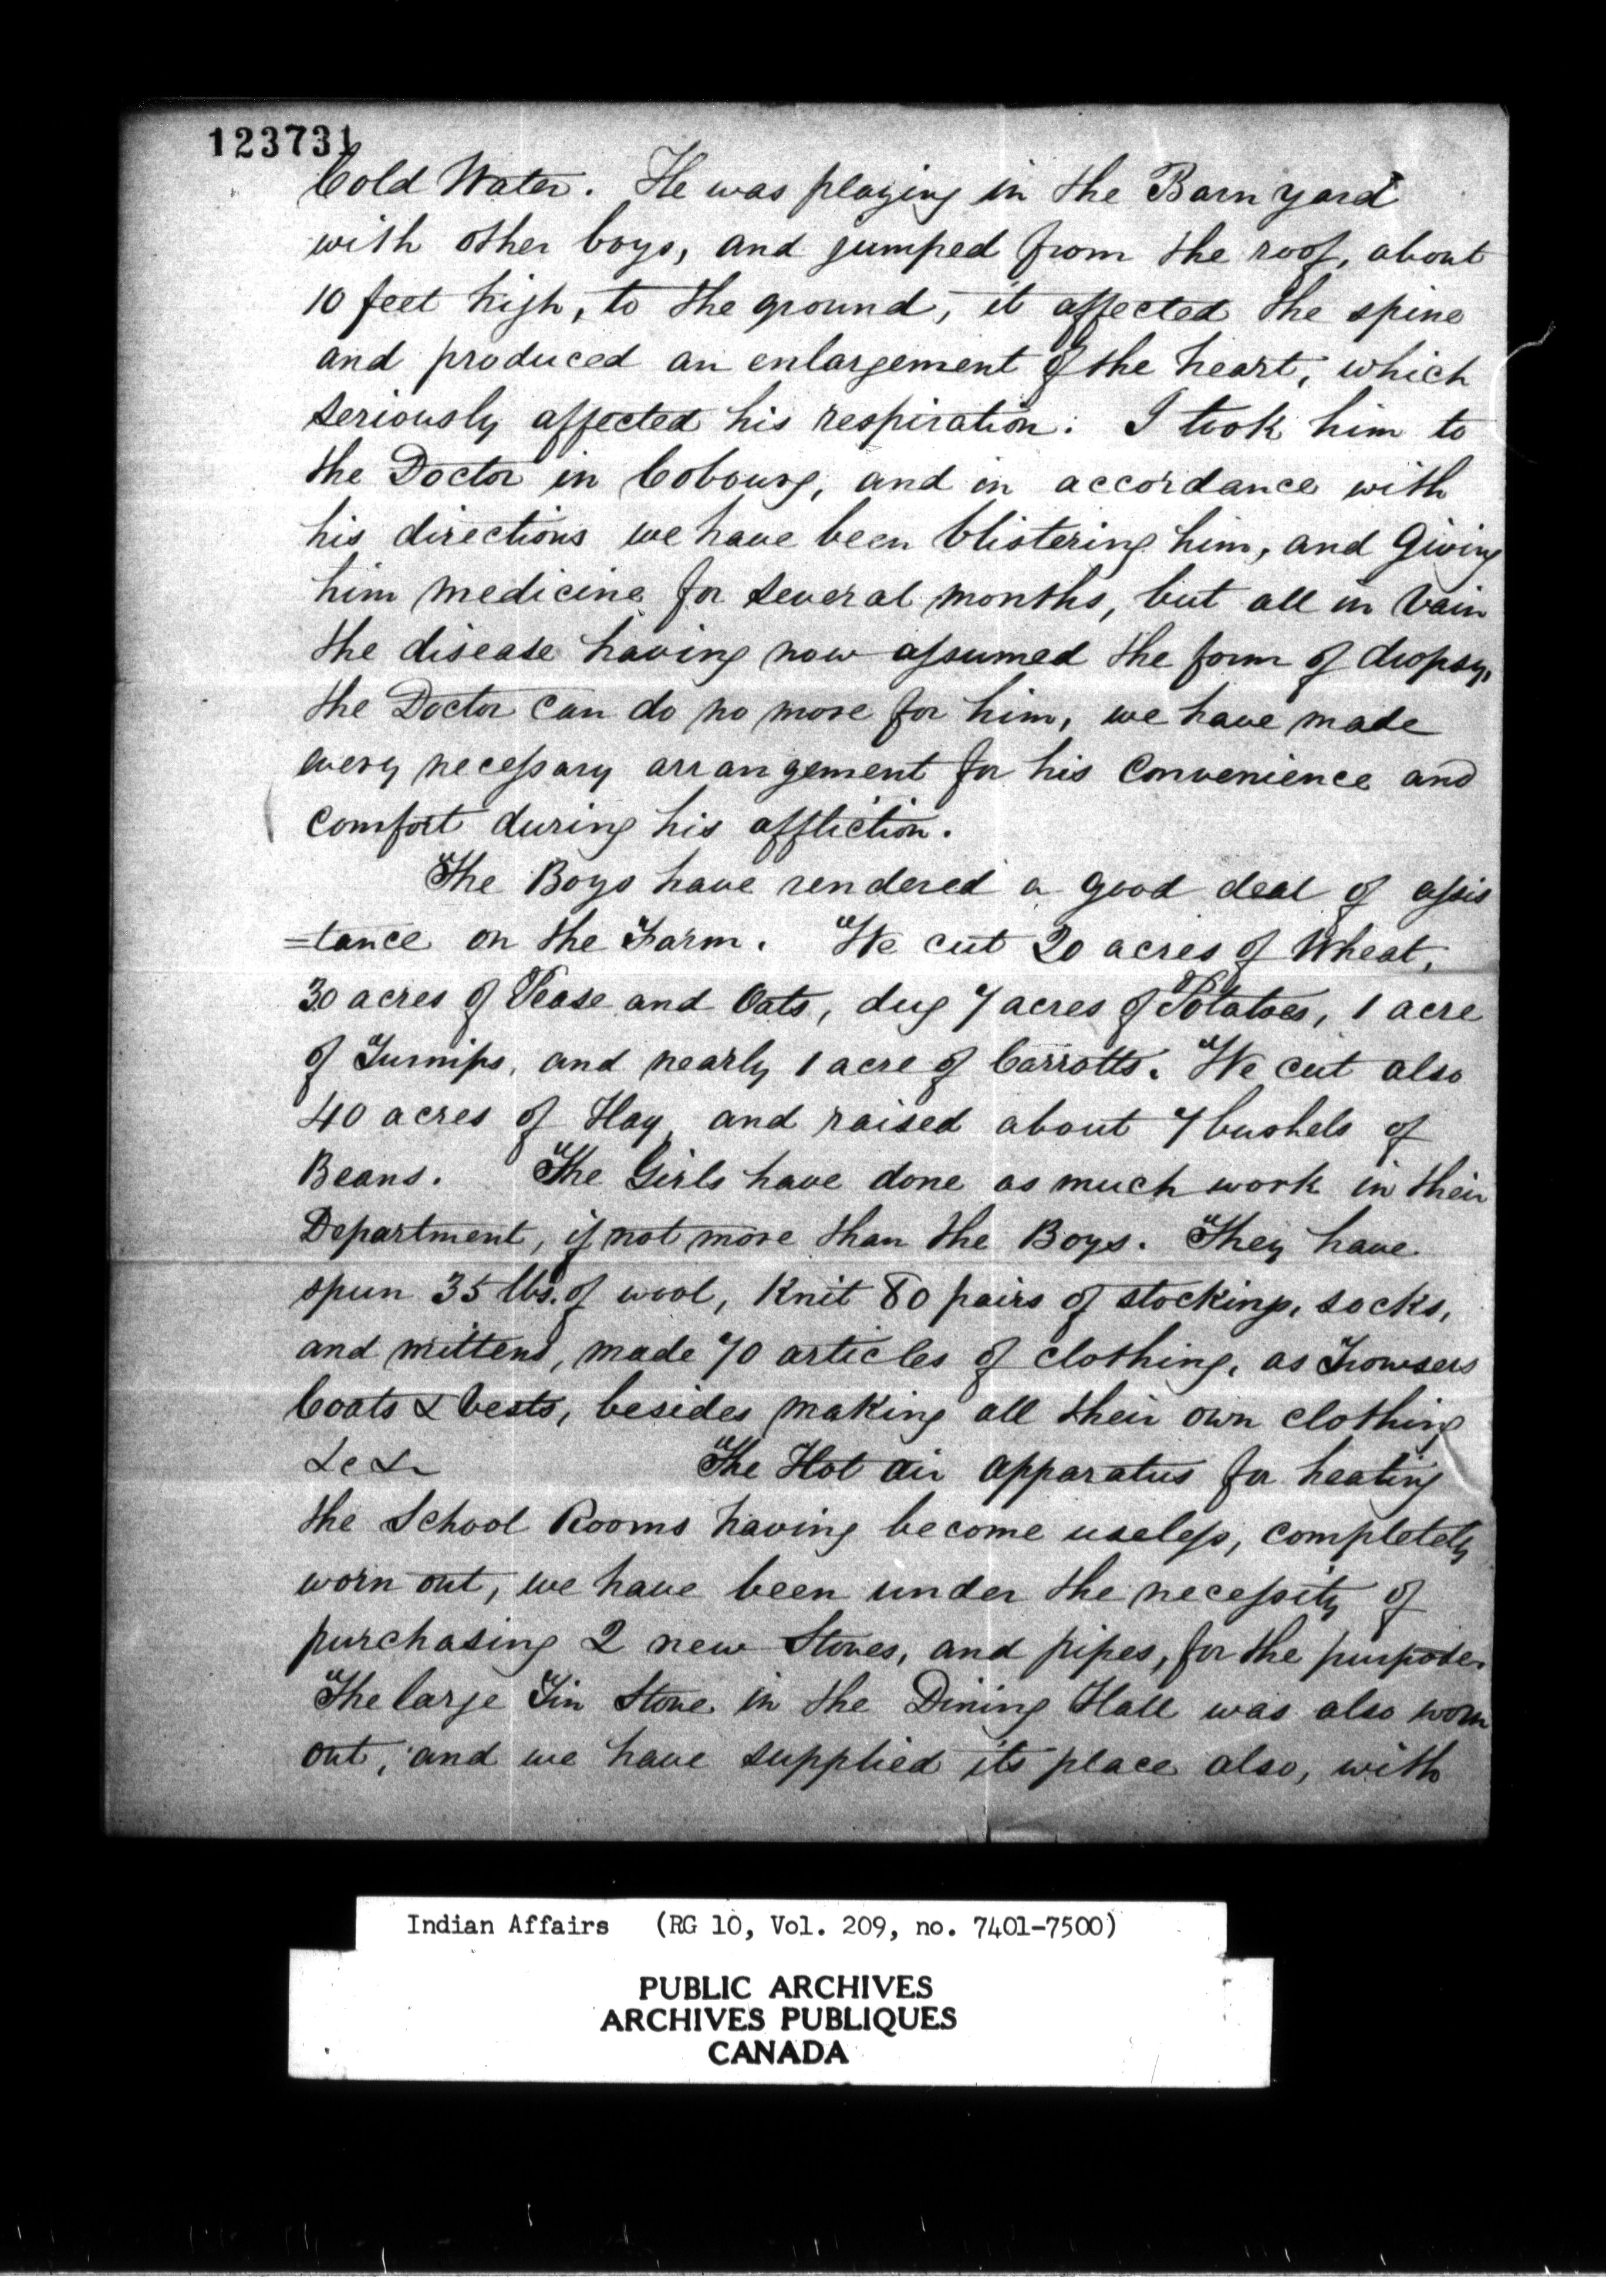 123731
Cold Water. He was playing in the Barn yard
with other boys, and jumped from the roof, about
10 feet high, to the ground, it affected the spine
and produced an enlargement of the heart, which
seriously affected his respiration. I took him to
the Doctor in Cobourg, and in accordance with
his directions we have been blistering him, and Giving
him medicine for several months, but all in vain
the disease having now assumed the form of dropsy,
the Doctor can do no more for him, we have made
every necessary arrangement for his convenience and
comfort during his affliction.
The Boys have rendered a good deal of assis
=tance on the Farm. We cut 20 acres of Wheat,
30 acres of Pease and Oats, dug 7 acres of Potatoes, 1 acre
of Turnips, and nearly 1 acre of Carrotts. We cut also
40 acres of Hay, and raised about 7 bushels of
Beans. The Girls have done as much work in their
Department, if not more than the Boys. They have
spun 35 lbs. of wool, Knit 80 pairs of stockings, socks,
and mittens, made 70 articles of clothing, as Trowsers
Coats & Vests, besides making all their own clothing
&c &c The Hot air apparatus for heating
the School Rooms having become useless, completely
worn out, we have been under the necessity of
purchasing 2 new Stoves, and pipes, for the purpose.
The large Tin Stove in the Dining Hall was also worn
out, and we have supplied its place also, with
Indian Affairs (RG 10, Vol. 209, no. 7401-7500)
PUBLIC ARCHIVES
ARCHIVES PUBLIQUES
CANADA